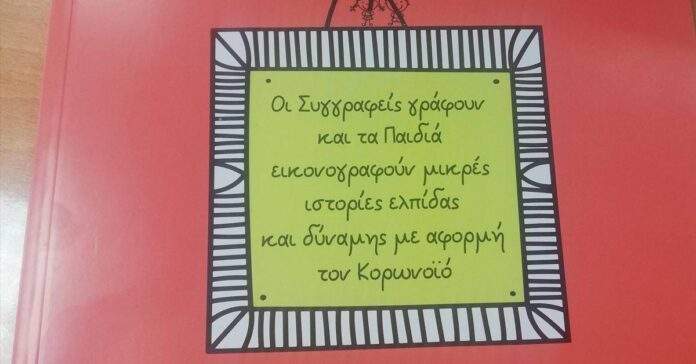 Οι Συγγραφείς γράφουν
και τα Παιδιά
εικονογραφούν μικρές
ιστορίες ελπίδας
και δύναμης με αφορμή
τον Κορωνοϊό